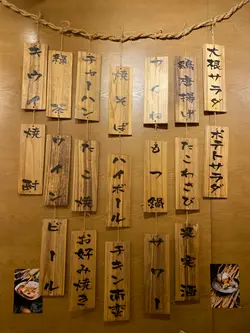 大根サラダ
ポテトサラダ
鶏唐揚げ
たこわさび
果実酒
つくね
もつ鍋
サワー
焼そば
ハイボール
チキン南蛮
チャーハン
たこ焼
お好み焼き
緑茶
ワイン
ビール
キウイ
焼酎